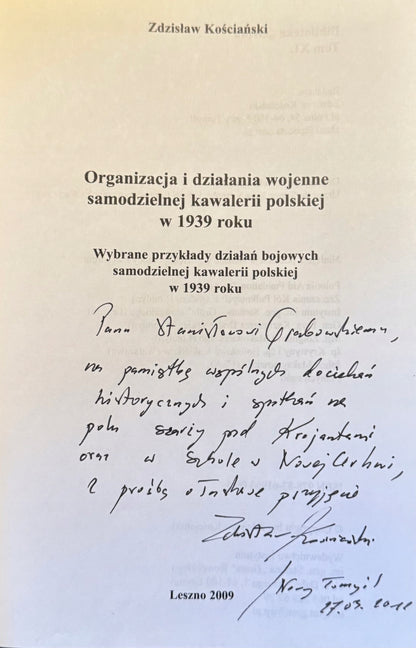 Zdzisław Kościański
Organizacja i działania wojenne
samodzielnej kawalerii polskiej
w 1939 roku
Wybrane przykłady działań bojowych
samodzielnej kawalerii polskiej
w 1939 roku
Panu Stanisławowi Grabowskiemu,
na pamiątkę wspólnych dociekań
historycznych i spotkań na
polu szarży pod Krojantami
oraz w szkole w Nowej Cerkwi,
z prośbą o łaskawe przyjęcie
Nowy Tomyśl
Leszno 2009